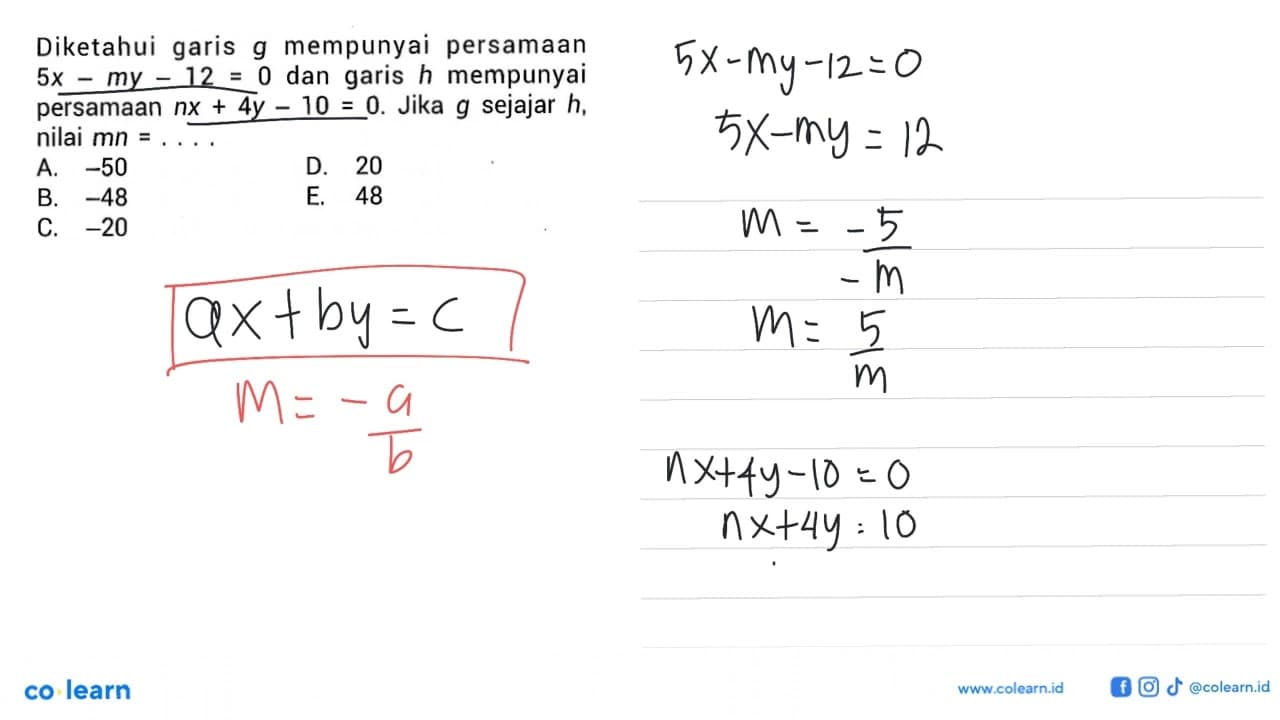 Diketahui garis g mempunyai persamaan
5x – my – 12 = 0 dan garis h mempunyai
persamaan nx + 4y – 10 = 0. Jika g sejajar h,
nilai mn = . . . .
A. –50 D. 20
B. –48 E. 48
C. –20
ax+by=c
m = -a/b
5x-my-12=0
5x-my = 12
m = -5/-m
m = 5/m
nx+4y-10=0
nx+4y = 10
co learn
www.colearn.id
@colearn.id